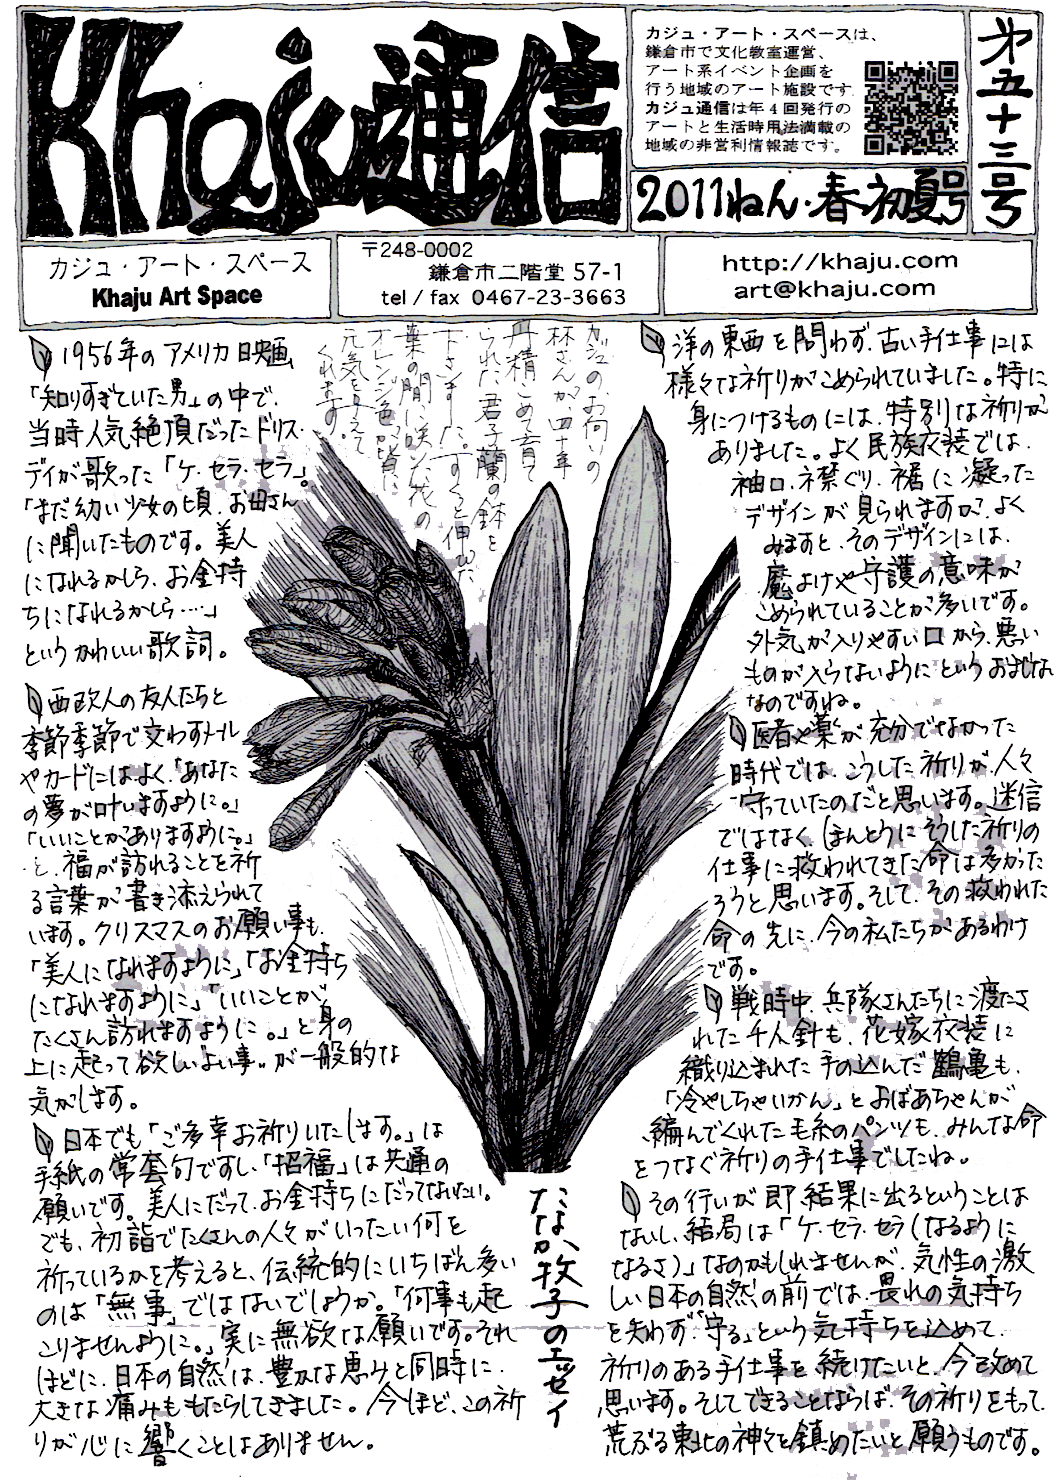 Khaju通信
カジュ・アート・スペースは、
鎌倉市で文化教室運営、
アート系イベント企画を
行う地域のアート施設です
カジュ通信は年4回発行の
アートと生活時用法満載の
地域の非営利情報誌です。
第五十三号
2011ねん・春初夏号
カジュ・アート・スペース
Khaju Art Space
〒248-0002
鎌倉市二階堂 57-1
tel / fax 0467-23-3663
http://khaju.com
art@khaju.com
1956年のアメリカ映画
「知りすぎていた男」の中で、
当時人気絶頂だったドリス・
デイが歌った「ケ・セラ・セラ」。
「まだ幼い少女の頃、お母さん
に聞いたものです。美人
になれるかしら、お金持
ちになれるかしら…。」
というかわいい歌詞。
西欧人の友人たちと
季節季節で交わすメール
やカードにはよく、「あなた
の夢が叶いますように。」
「いいことがありますように。」
と、福が訪れることを祈
る言葉が書き添えられて
います。クリスマスのお願い事も、
「美人になれますように」「お金持ち
になれますように」「いいことが
たくさん訪れますように。」と身の
上に起って欲しい"よい事"が一般的な
気がします。
日本でも「ご多幸お祈りいたします。」は
手紙の常套句ですし、「招福」は共通の
願いです。美人にだって、お金持ちにだってなりたい。
でも、初詣でたくさんの人々がいったい何を
祈っているかを考えると、伝統的にいちばん多い
のは「無事」ではないでしょうか。「何事も起
こりませんように。」実に無欲な願いです。それ
ほどに、日本の自然は、豊かな恵みと同時に、
大きな痛みももたらしてきました。今ほど、この祈
りが心に響くことはありません。
カジュのお向いの
林さんが、四十年
丹精こめて育て
られた君子蘭の鉢を
下さいました。すくっと伸びた
葉の間に咲いた花の
オレンジ色が皆に
元気を与えて
くれます。
洋の東西を問わず、古い手仕事には
様々な祈りがこめられていました。特に
身につけるものには、特別な祈りが
ありました。よく民族衣装では、
袖口、襟ぐり、裾に凝った
デザインが見られますが、よく
みますと、そのデザインには、
魔よけや守護の意味が
こめられていることが多いです。
外気が入りやすい口から、悪い
ものが入らないようにというおまじない
なのですね。
医者や薬が充分でなかった
時代では、こうした祈りが、人々
守っていたのだと思います。迷信
ではなく、ほんとうにそうした祈りの
仕事に救われてきた命は多かった
ろうと思います。そして、その救われた
命の先に、今の私たちがあるわけ
です。
戦時中、兵隊さんたちに渡たさ
れた千人針も、花嫁衣装に
織り込まれた手の込んだ鶴亀も、
「冷やしちゃいかん」とおばあちゃんが
編んでくれた毛糸のパンツも、みんな命
をつなぐ祈りの手仕事でしたね。
その行いが即結果に出るということは
ないし、結局は「ケ・セラ・セラ(なるように
なるさ)」なのかもしれませんが、気性の激
しい日本の自然の前では、畏れの気持ち
を失わず"守る"という気持ちを込めて、
祈りのある手仕事を続けたいと、今改めて
思います。そしてできることならば、その祈りをもって、
荒ぶる東北の神々を鎮めたいと願うものです。
たなか牧子のエッセイ